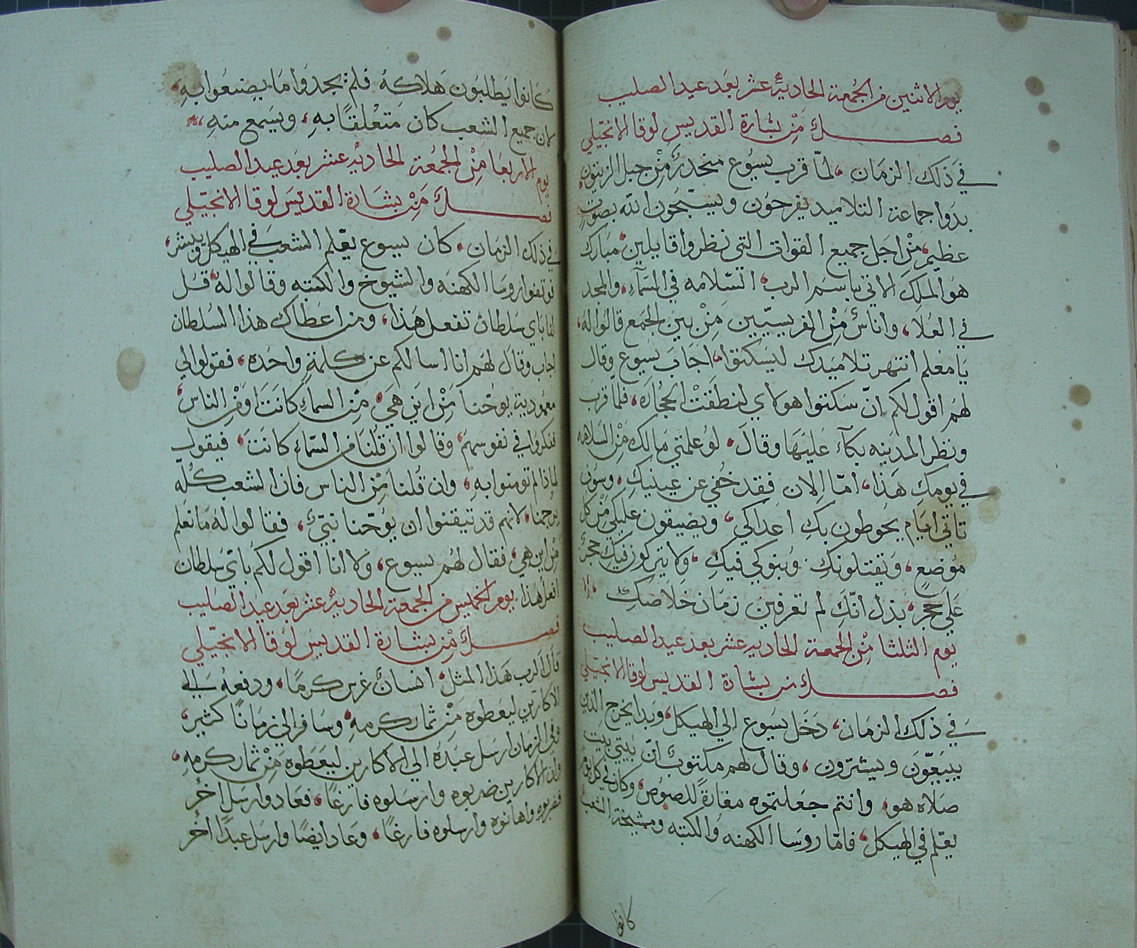 يوم الاثنين من الجمعة الحادية عشر بعد عيد الصليب
فصل من بشارة القديس لوقا الانجيلي
في ذلك الزمان، لما قرب يسوع منحدر من جبل الزيتون،
بدوا جماعة التلاميد يفرحون ويسبحون الله بصوت
عظيم، من اجل جميع القوات التي نظروا قايلين، مبارك
هو الملك الاتي باسم الرب، السلامه في السمآء، والمجد
في العلا، واناس من الفريسيين من بين الجمع قالوا له،
يا معلم انتهر تلاميدك ليسكتوا، اجاب يسوع وقال
لهم اقول لكم ان سكتوا هولاي لنطقت الحجاره، فلما قرب
ونظر المدينه بكآ عليها وقال، لو علمتي مالك من السلامه
في يومك هذا، امّا الان فقد خفي عن عينيك، وسوف
تاتي ايام يحوطون بك اعداكي، ويضيقون عليكي من كل
موضع، ويقتلونك وبنوكي فيك، ولا يتركون فيك حجر
على حجر، بدل انّك لم تعرفين زمان خلاصك
يوم الثلثا من الجمعة الحادية عشر بعد عيد الصليب
فصل من بشارة القديس لوقا الانجيلي
في ذلك الزمان، دخل يسوع الي الهيكل، وبدا يخرج الذين
يبيعون ويشترون، وقال لهم مكتوب ان بيتي بيت
صلاه هو، وانتم جعلتموه مغارة للصوص، وكان في كل يوم
يعلم في الهيكل، فامّا روسا الكهنه والكتبه ومشيخة الشعب
كانوا
كانوا يطلبون هلاكه فلم يجدوا ما يصنعوا به،
لان جميع الشعب كان متعلقًا به، ويسمع منه
يوم الاربعا من الجمعة الحادية عشر بعد عيد الصليب
فصل من بشارة القديس لوقا الانجيلي
في ذلك الزمان، كان يسوع يعلم الشعب في الهيكل ويبشر،
فوقفوا روسا الكهنه والشيوخ والكتبه وقالوا له، قل
لنا باي سلطان تفعل هذا، ومن اعطاك هذا السلطان
اجاب وقال لهم انا اسالكم عن كلمة واحده، فقولوا لي
معمودية يوحنا من اين هي، من السماء كانت او من الناس،
ففكروا في نفوسهم، وقالوا ان قلنا من السماء كانت، فيقول
لماذا لم تومنوا به، وان قلنا من الناس فان الشعب كله
يرجمنا، لانهم قد تيقنوا ان يوحنا نبيّ، فقالوا له ما نعلم
من اين هي، فقال لهم يسوع، ولا انا اقول لكم باي سلطان
افعل هذا يوم الخميس من الجمعة الحادية عشر بعد عيد الصليب
فصل من بشارة القديس لوقا الانجيلي
قال الرب هذا المثل، انسان غرس كرمًا، ودفعه الي
الاكارين ليعطوه من ثمار كرمه، وسافر الى زمانًا كثير،
وفي الزمان ارسل عبده الي الاكارين ليعطوه من ثمار كرمه،
الاكارين ضربوه وارسلوه فارغًا، فعاد وارسل اخر
فضربوه واهانوه وارسلوه فارغًا، وعاد ايضًا وارسل عبدًا اخر